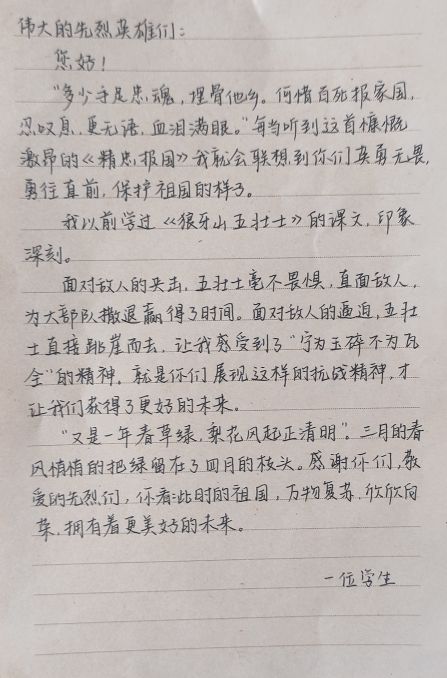 伟大的先烈英雄们：
您好！
“多少手足忠魂，埋骨他乡。何惜百死报家国，
忍叹息，更无语，血泪满眼。”每当听到这首慷慨
激昂的《精忠报国》我就会联想到你们英勇无畏，
勇往直前，保护祖国的样子。
我以前学过《狼牙山五壮士》的课文，印象
深刻。
面对敌人的夹击，五壮士毫不畏惧，直面敌人，
为大部队撤退赢得了时间。面对敌人的逼迫，五壮
士直接跳崖而去，让我感受到了“宁为玉碎不为瓦
全”的精神。就是你们展现这样的抗战精神，才
让我们获得了更好的未来。
“又是一年春草绿，梨花风起正清明”。三月的春
风悄悄的把绿留在了四月的枝头。感谢你们，敬
爱的先烈们，你看此时的祖国，万物复苏，欣欣向
荣，拥有着更美好的未来。
一位学生